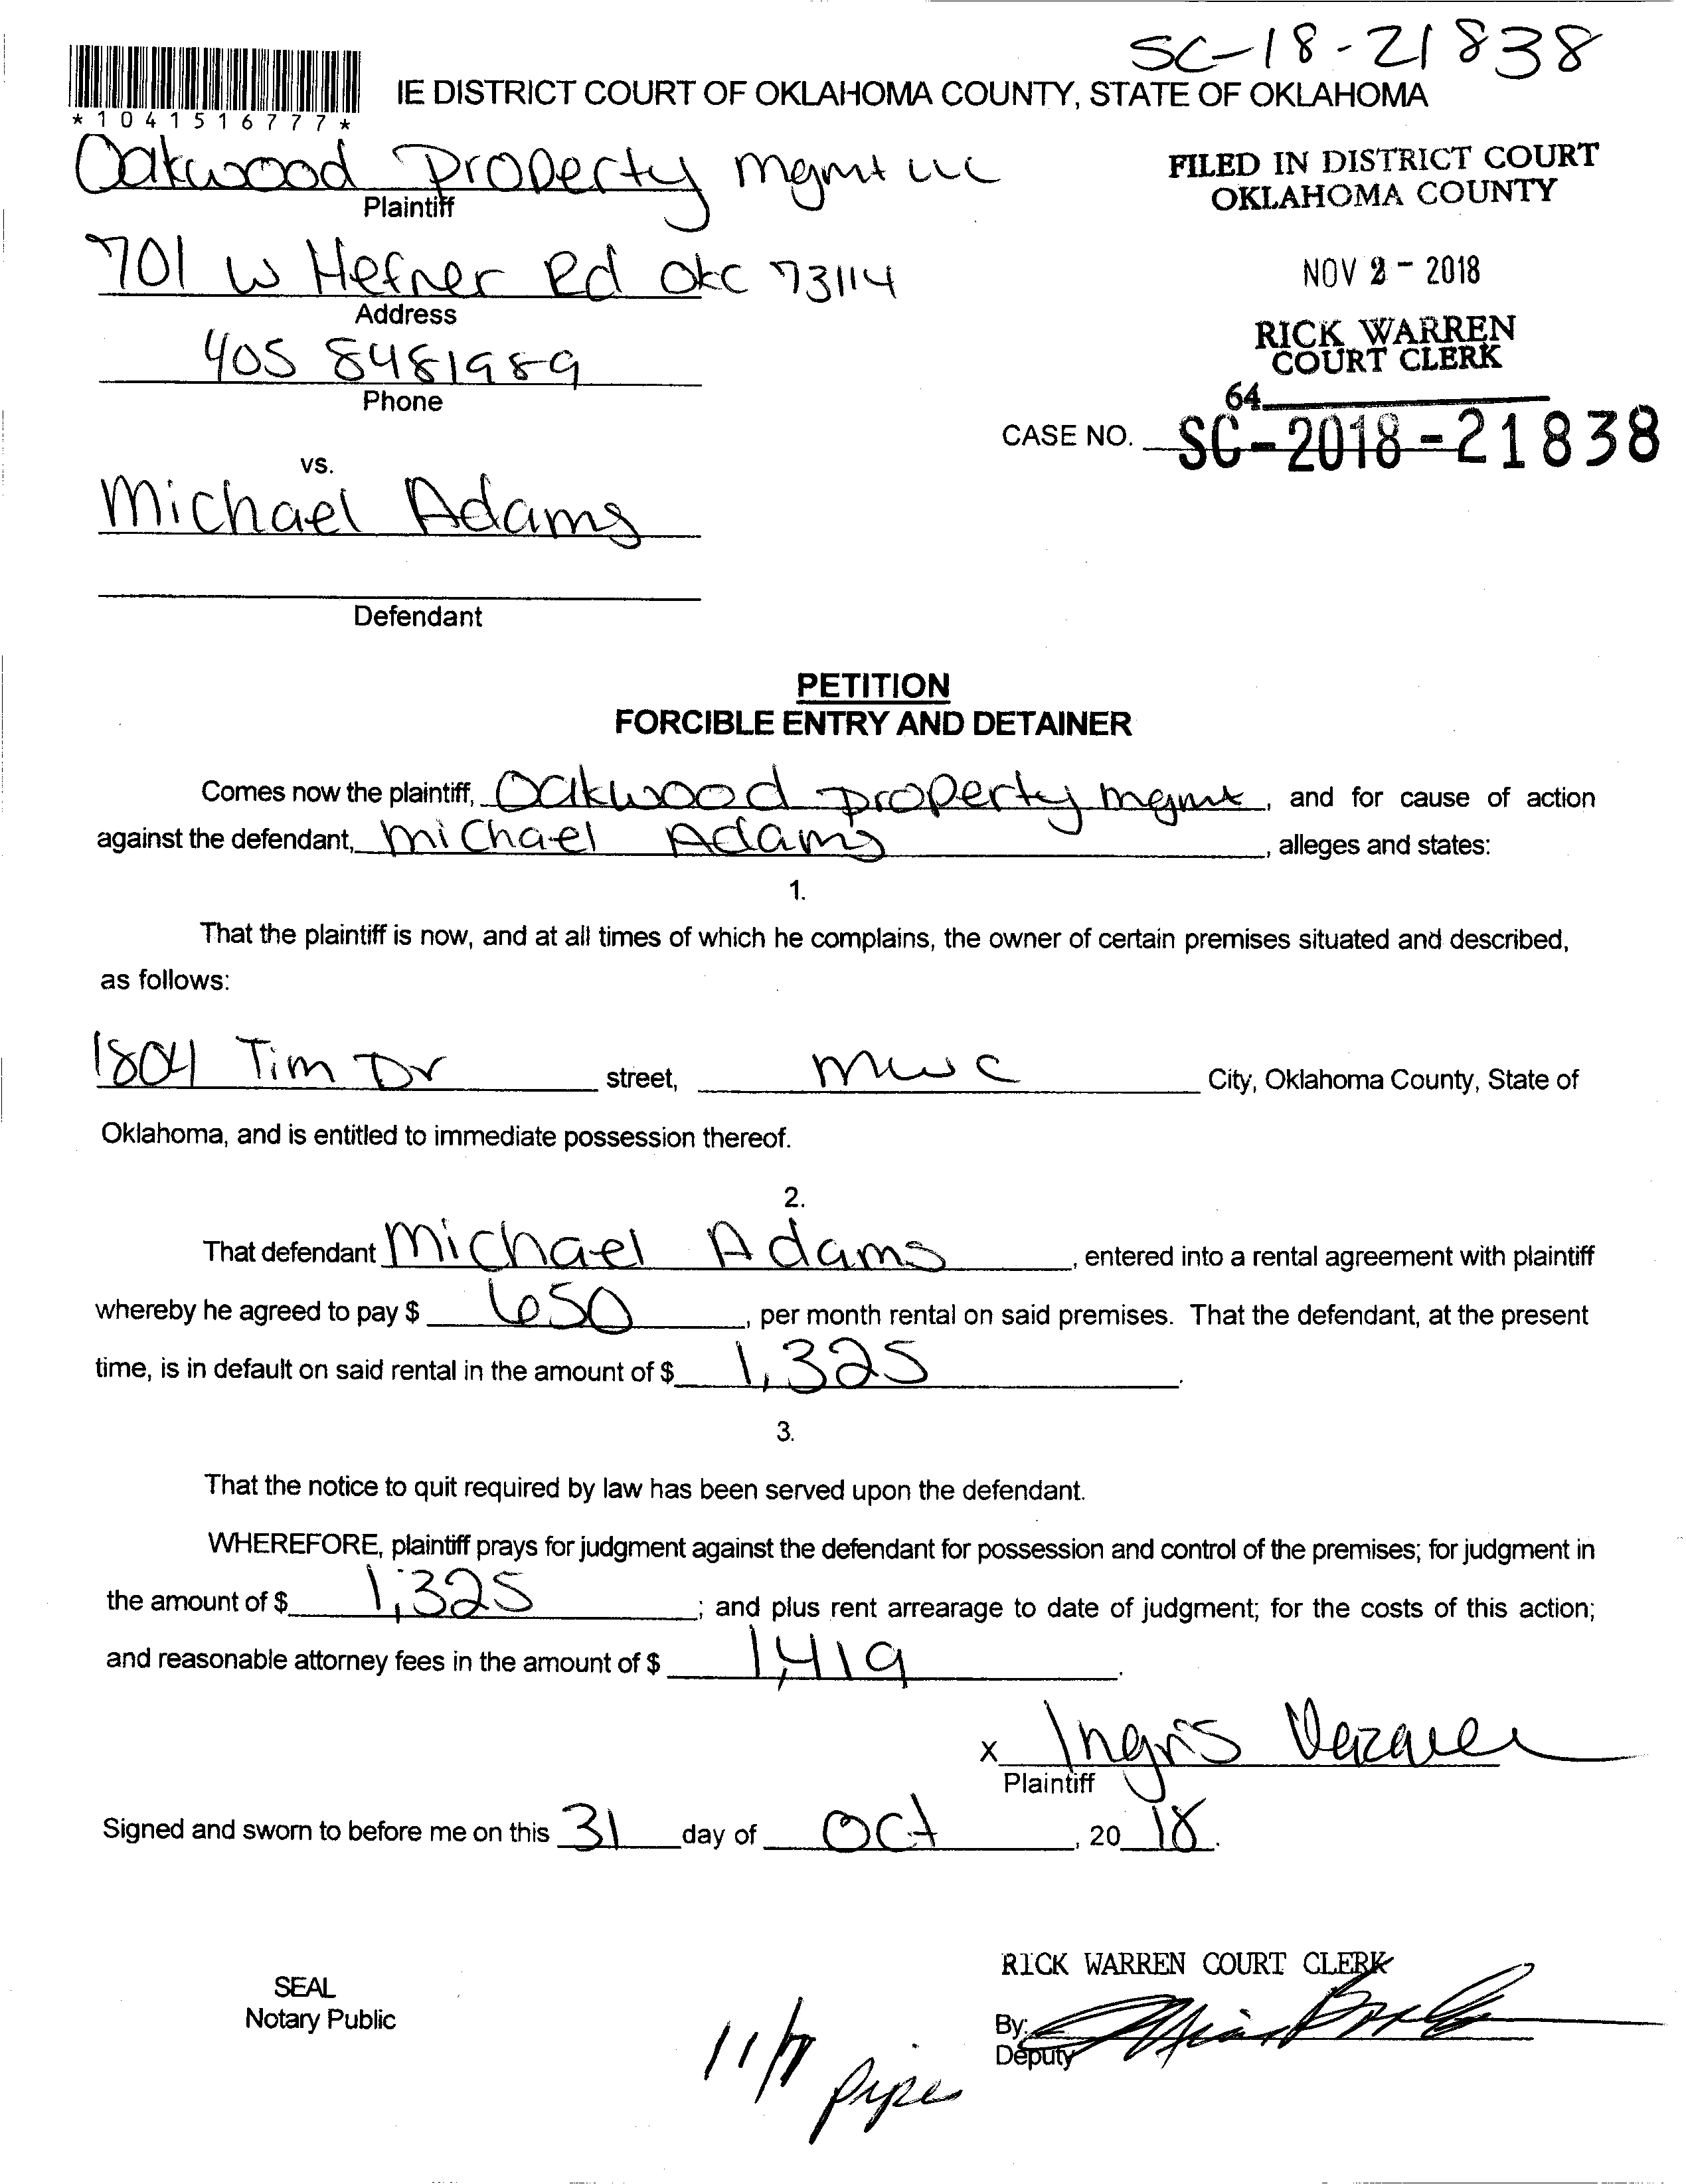 SC-18-21838
IE DISTRICT COURT OF OKLAHOMA COUNTY, STATE OF OKLAHOMA
*1041516777*
Oakwood Property mgmt LLC
Plaintiff
FILED IN DISTRICT COURT
OKLAHOMA COUNTY
701 W Hefner Rd OKC 73114
Address
NOV 2 - 2018
405 8481989
Phone
RICK WARREN
COURT CLERK
64
CASE NO. SC-2018-21838
vs.
Michael Adams
Defendant
PETITION
FORCIBLE ENTRY AND DETAINER
Comes now the plaintiff, Oakwood property mgmt, and for cause of action
against the defendant, Michael Adams, alleges and states:
1.
That the plaintiff is now, and at all times of which he complains, the owner of certain premises situated and described,
as follows:
1804 Tim Dr street, MWC City, Oklahoma County, State of
Oklahoma, and is entitled to immediate possession thereof.
2.
That defendant Michael Adams, entered into a rental agreement with plaintiff
whereby he agreed to pay $ 650, per month rental on said premises. That the defendant, at the present
time, is in default on said rental in the amount of $ 1,325.
3.
That the notice to quit required by law has been served upon the defendant.
WHEREFORE, plaintiff prays for judgment against the defendant for possession and control of the premises; for judgment in
the amount of $ 1,325; and plus rent arrearage to date of judgment; for the costs of this action;
and reasonable attorney fees in the amount of $ 1,419.
x Ingris
Plaintiff
Signed and sworn to before me on this 31 day of Oct, 20 18.
RICK WARREN COURT CLERK
SEAL
Notary Public
By:
Deputy
11/7